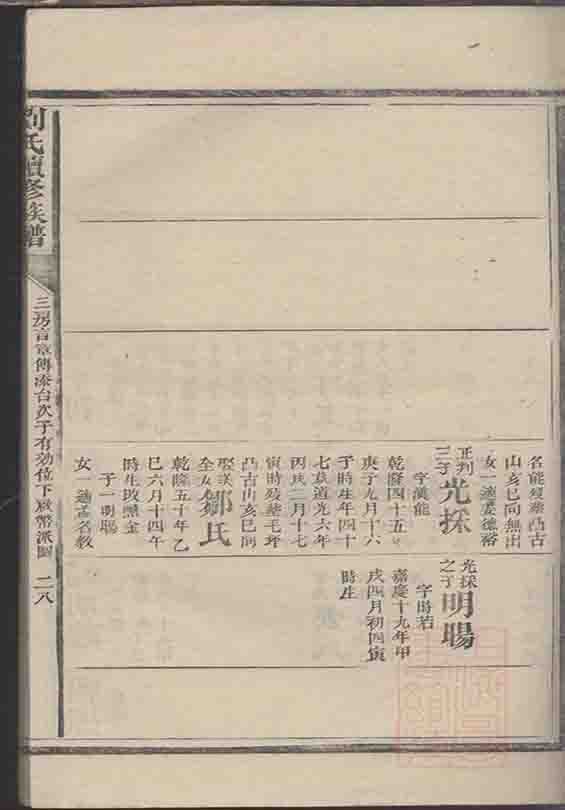 名能燮葬凸古
山亥巳向無出
女一適姜德裕
正列三子光採
字漢能
乾隆四十五年
庚子九月十六
子時生年四十
七歲道光六年
丙戌二月十七
寅時歿葬毛坪
凸古山亥巳向
娶漢全女鄒氏
乾隆五十年乙
巳六月十四午
時生歿無金
子一明暘
女一適孟名教
光採之子明暘
字時若
嘉慶十九年甲
戌四月初四寅
時生
劉氏續修族譜
三房言章傳泰台次子有効位下派圖 二八